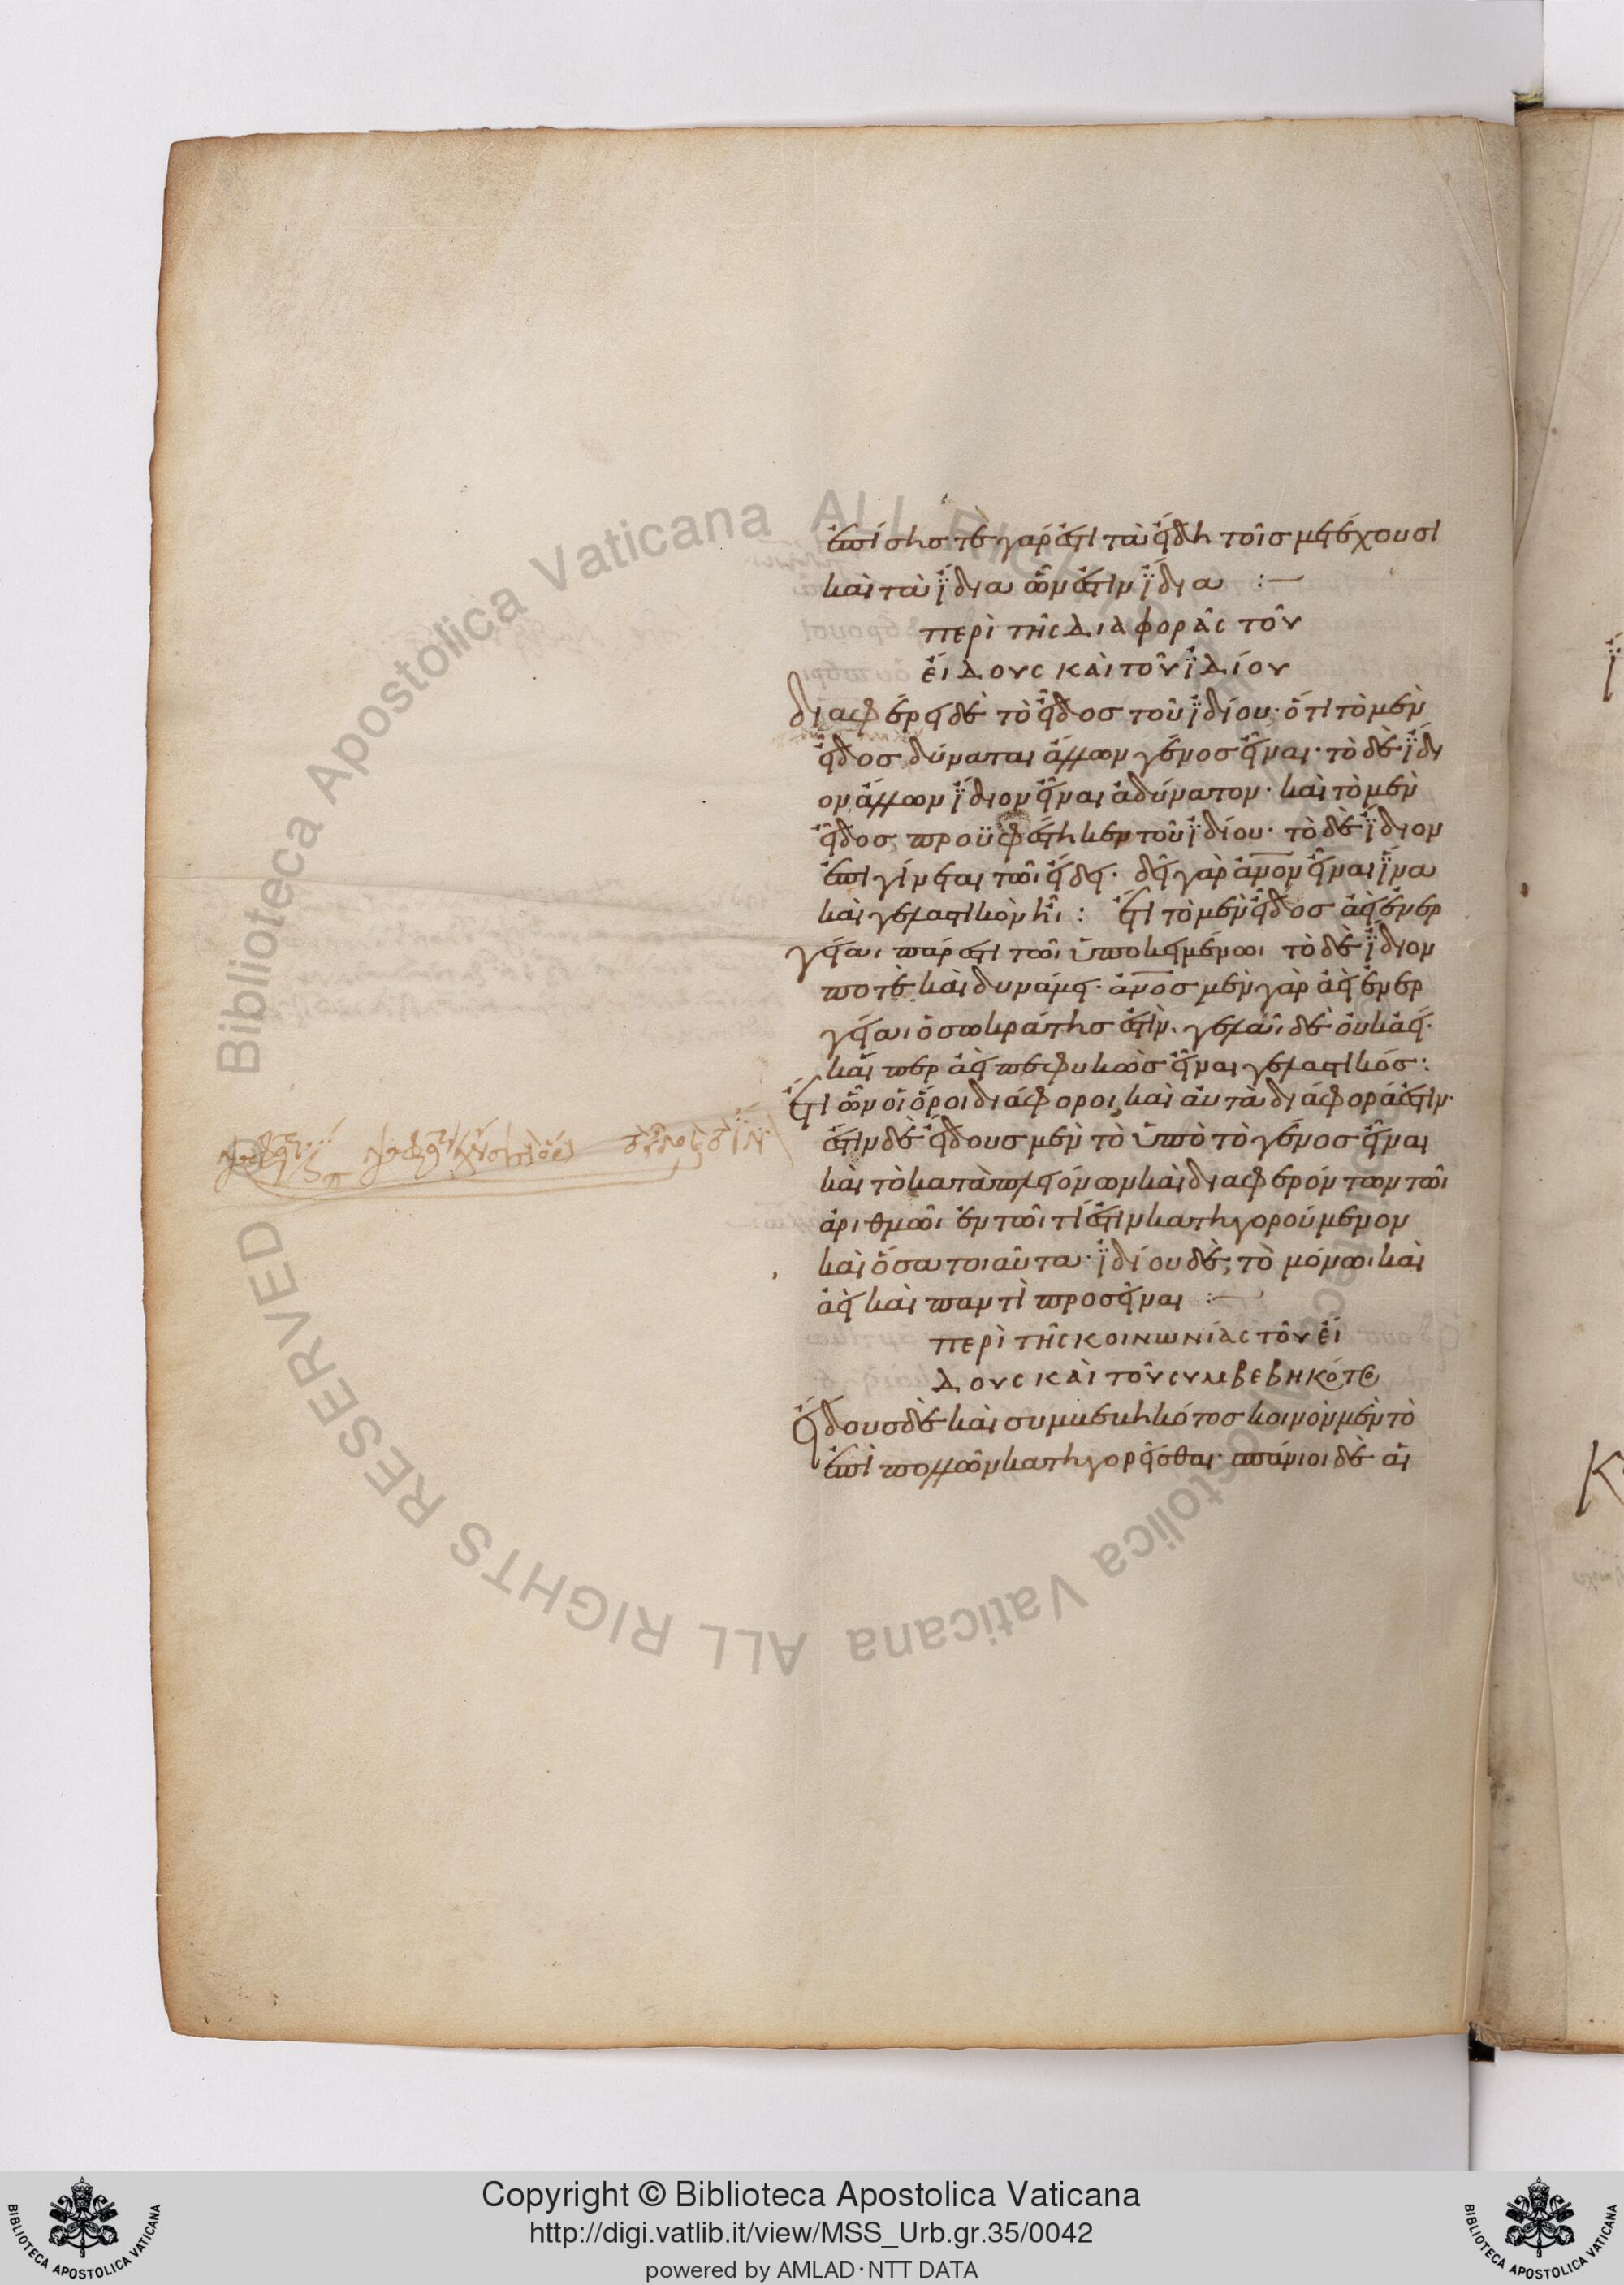 ἐπίσησ τέ γάρ ἐστι τὰ εἴδη τοῖσ μετέχουσι
καὶ τὰ ἴδια ὧν ἐστιν ἴδια :—
περὶ τῆς διαφορᾶς τοῦ
εἴδους καὶ τοῦ ἰδίου
διαφέρει δὲ τὸ εἶδοσ τοῦ ἰδίου· ὅτι τὸ μὲν
εἶδοσ δύναται ἄλλων γένοσ εἶναι· τὸ δὲ ἴδι
ον ἄλλων ἴδιον εἶναι ἀδύνατον· καὶ τὸ μὲν
εἶδοσ προϋφέστηκεν τοῦ ἰδίου· τὸ δὲ ἴδιον
ἐπιγίνεται τῶι εἴδει· δεῖ γὰρ ἄνον εἶναι ἵνα
καὶ γελαστικὸν ἦι : ἔτι τὸ μὲν εἶδοσ ἀεὶ ἐνερ
γείαι πάρεστι τῶι ὑποκειμένωι τὸ δὲ ἴδιον
ποτὲ καὶ δυνάμει· ἄνοσ μὲν γὰρ ἀεὶ ἐνερ
γείαι ὁ σωκράτησ ἐστίν· γελᾶι δὲ οὐκ ἀεί·
καί περ ἀεὶ πεφυκὼσ εἶναι γελαστικόσ :
Ἔτι ὧν οἱ ὅροι διάφοροι καὶ αὐτὰ διάφορά ἐστιν·
ἔστιν δὲ εἴδουσ μὲν τὸ ὑπὸ τὸ γένοσ εἶναι
καὶ τὸ κατὰ πλειόνων καὶ διαφερόντων τῶι
ἀριθμῶι ἐν τῶι τί ἐστιν κατηγορούμενον
καὶ ὅσα τοιαῦτα· ἰδίου δὲ, τὸ μόνωι καὶ
ἀεὶ καὶ παντὶ προσεῖναι :—
περὶ τῆς κοινωνίας τοῦ εἴ
δους καὶ τοῦ συμβεβηκότο
Εἴδουσ δὲ καὶ συμβεβηκότοσ κοινὸν μὲν τὸ
ἐπὶ πολλῶν κατηγορεῖσθαι· σπάνιοι δὲ αἱ
Copyright © Biblioteca Apostolica Vaticana
http://digi.vatlib.it/view/MSS_Urb.gr.35/0042
powered by AMLAD·NTT DATA